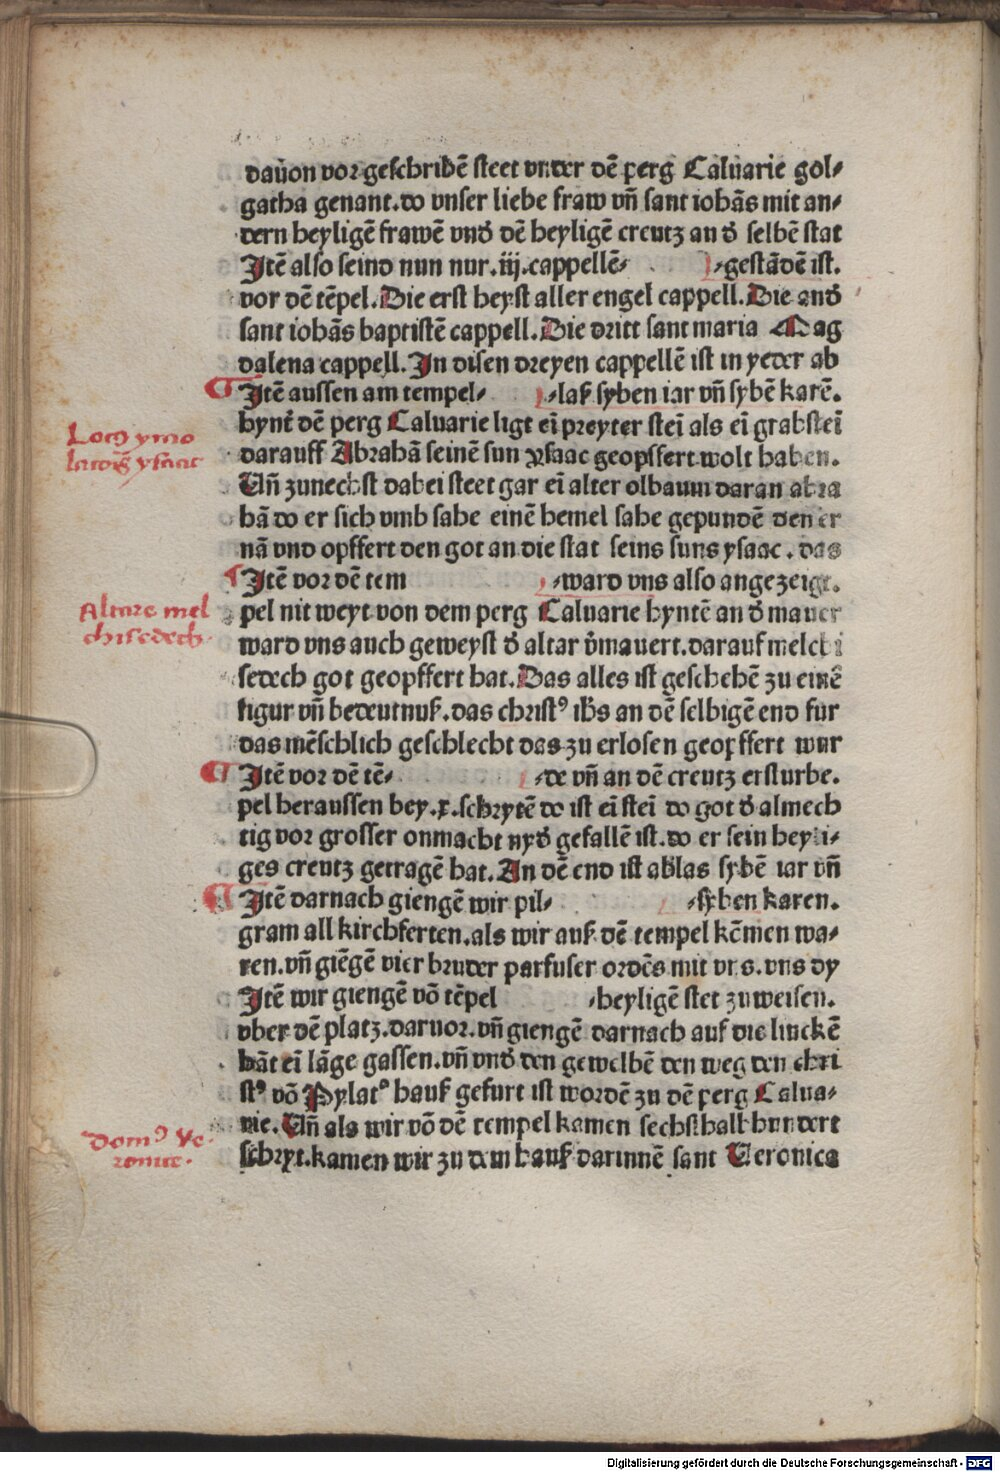 dauon vor geschribē steet vnder dē perg Caluarie gol-
gatha genant. do vnser liebe fraw vn̄ sant iohās mit an-
dern heyligē frawē vnd̕ dē heyligē creutz an d̕ selbē stat
Itē also seind nun nur .iij. cappellē- -gestādē ist.
vor dē tēpel. Die erst heyst aller engel cappell. Die and̕
sant iohās baptistē cappell. Die dritt sant maria Mag
dalena cappell. In disen dreyen cappellē ist in yeder ab
Itē aussen am tempel- -laß syben iar vn̄ sybē karē.
hynt̕ dē perg Caluarie ligt eī preyter steī als eī grabsteī
darauff Abrahā seinē sun ysaac geopffert wolt haben.
Vn̄ zunechst dabei steet gar eī alter olbaum daran abra
hā do er sich vmb sahe einē hemel sahe gepundē den er
nā vnd opffert den got an die stat seins suns ysaac. das
Itē vor dē tem -ward vns also angezeigt.
pel nit weyt von dem perg Caluarie hyntē an d̕ mauer
ward vns auch geweyst d̕ altar v̕mauert. darauf melchi
sedech got geopffert hat. Das alles ist geschehē zu einē
figur vn̄ bedeutnuß. das christꝰ ihs̄ an dē selbigē end fur
das mēschlich geschlecht das zu erlosen geopffert wur
Itē vor dē tē- -de vn̄ an dē creutz ersturbe.
pel heraussen bey .x. schrytē do ist eī steī do got d̕ almech
tig vor grosser onmacht nyd̕ gefallē ist. do er sein heyli-
ges creutz getragē hat. An dē end ist ablas sybē iar vn̄
Itē darnach giengē wir pil- -syben karen.
gram all kirchferten. als wir auß dē tempel kēmen wa-
ren. vn̄ giēgē vier bruder parfuser ordēs mit vns. vns dy
Itē wir giengē vō tēpel -heyligē stet zuweisen.
vber dē platz. daruor. vn̄ giengē darnach auf die linckē
hāt eī lāge gassen. vn̄ vnd̕ den gewelbē den weg den chri
stꝰ vō Pylatꝰ hauß gefurt ist wordē zu dē perg Calua-
rie. Vn̄ als wir vō dē tempel kamen sechsthalb hundert
schryt. kamen wir zu dem hauß darinnē sant Veronica
Locꝰ ymo
lacōis ysaac
Altare mel
chisedech.
Domꝰ Ve
ronice.
Digitalisierung gefördert durch die Deutsche Forschungsgemeinschaft - DFG